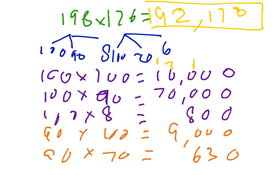 198×176=192,170
100 90 8 100 70 6
100×100=10,000
100×90=70,000
100×8=800
90×100=9,000
90×70=630